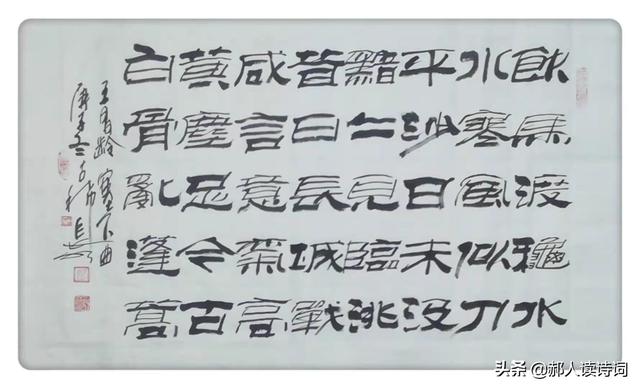 飲馬渡龝水
水寒風似刀
平沙日未没
黯〻見臨洮
昔日長城戰
咸言意氣高
黄塵足今古
白骨亂蓬蒿
王昌齡 塞下曲
庚子冬
头条 @郝人读诗词